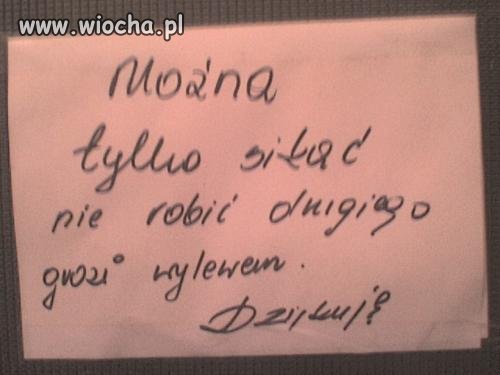 www.wiocha.pl
Można
tylko sikać
nie robić drugiego
grozi wylewem.
Dziękuję